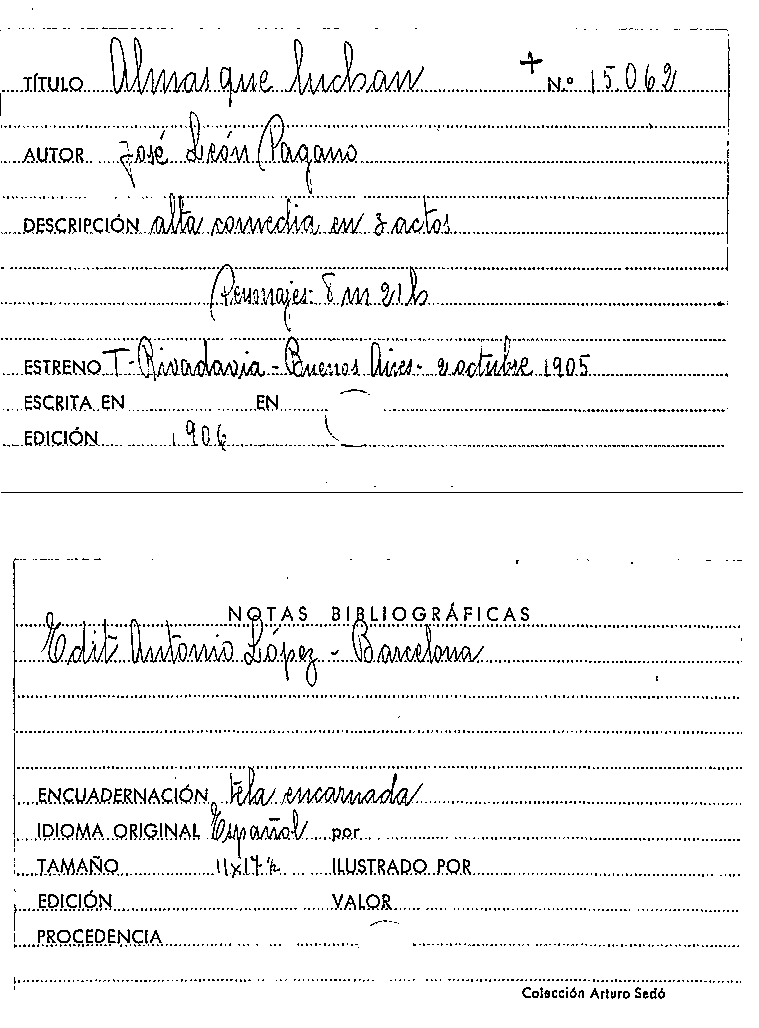 TÍTULO Almas que luchan + N.º 15.062
AUTOR José León Pagano
DESCRIPCIÓN alta comedia en 3 actos
Personajes: 8 m 21 h
ESTRENO T-Rivadavia-Buenos Aires- 2 octubre 1905
ESCRITA EN EN
EDICIÓN 1906
NOTAS BIBLIOGRÁFICAS
Edit Antonio López - Barcelona
ENCUADERNACIÓN tela encarnada
IDIOMA ORIGINAL Español por
TAMAÑO 11x17 ½ ILUSTRADO POR
EDICIÓN VALOR
PROCEDENCIA
Colección Arturo Sedó